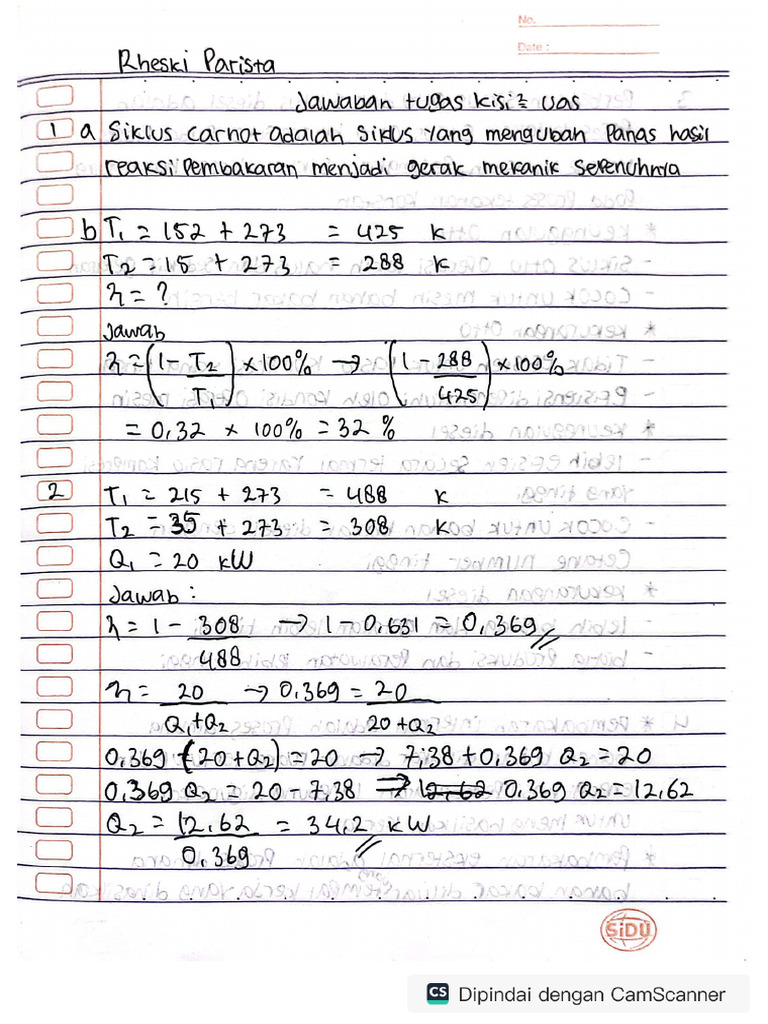 No.
Date :
Rheski Parista
Jawaban tugas kisi2 uas
1 a Siklus carnot adalah siklus yang mengubah Panas hasil
reaksi Pembakaran menjadi gerak mekanik sepenuhnya
b T1 = 152 + 273 = 425 k
T2 = 15 + 273 = 288 k
η = ?
Jawab
η = (1 - T2/T1) × 100% → (1 - 288/425) × 100%
= 0,32 × 100% = 32 %
2 T1 = 215 + 273 = 488 K
T2 = 35 + 273 = 308 K
Q1 = 20 kW
Jawab :
η = 1 - 308/488 → 1 - 0,631 = 0,369
η = 20/Q1+Q2 → 0,369 = 20/20+Q2
0,369 (20+Q2) = 20 → 7,38 + 0,369 Q2 = 20
0,369 Q2 = 20 - 7,38 → 12,62 0,369 Q2 = 12,62
Q2 = 12,62/0,369 = 34,2 kW
SiDU
CS Dipindai dengan CamScanner